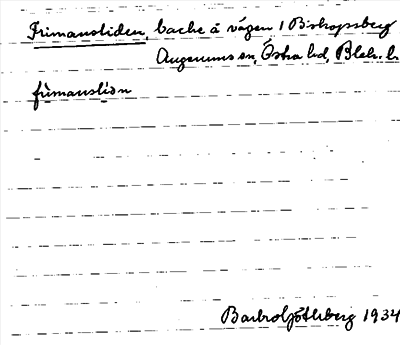 Frimansliden, backe å vägen i Biskopsberg
Augerums sn, Östra hd, Blek. l.
frimanslidn
Barbro Götherberg 1934